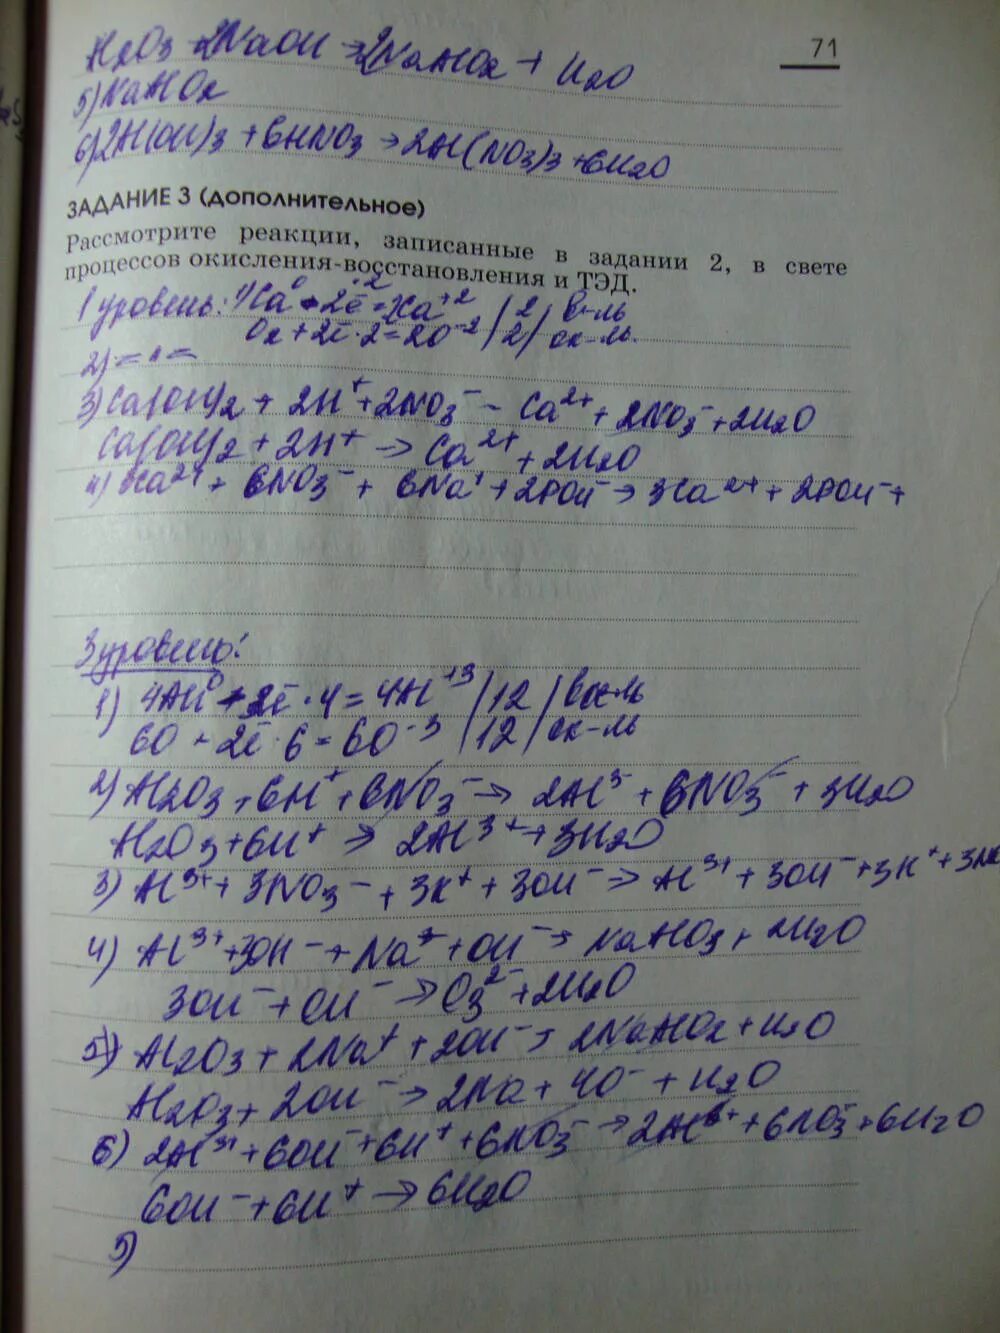 71
Al2O3 + 2NaOH → 2NaAlO2 + H2O
5) NaAlO2
6) 2Al(OH)3 + 6HNO3 → 2Al(NO3)3 + 6H2O
ЗАДАНИЕ 3 (дополнительное)
Рассмотрите реакции, записанные в задании 2, в свете
процессов окисления-восстановления и ТЭД.
1 уровень: 1) 2Ca⁰ - 2ē·2 = 2Ca⁺² | 2 | в-ль
O2 + 2ē·2 = 2O⁻² | 2 | ок-ль.
2) = " =
3) Ca(OH)2 + 2H⁺ + 2NO3⁻ - Ca²⁺ + 2NO3⁻ + 2H2O
Ca(OH)2 + 2H⁺ → Ca²⁺ + 2H2O
4) 3Ca²⁺ + 6NO3⁻ + 6Na⁺ + 2PO4⁻ → 3Ca²⁺ + 2PO4⁻ +
3 уровень:
1) 4Al⁰ - 2ē·4 = 4Al⁺³ | 12 | вос-ль
6O + 2ē·6 = 6O⁻³ | 12 | ок-ль
2) Al2O3 + 6H⁺ + 6NO3⁻ → 2Al³⁻ + 6NO3⁻ + 3H2O
Al2O3 + 6H⁺ → 2Al³⁺ + 3H2O
3) Al³⁺ + 3NO3⁻ + 3K⁺ + 3OH⁻ → Al³⁺ + 3OH⁻ + 3K⁺ +
4) Al³⁺ + 3OH⁻ + Na⁺ + OH⁻ → NaAlO3 + 2H2O
3OH⁻ + OH⁻ → O3²⁻ + 2H2O
5) Al2O3 + 2Na⁺ + 2OH⁻ → 2NaAlO2 + H2O
Al2O3 + 2OH⁻ → 2Na + 4O⁻ + H2O
6) 2Al³⁺ + 6OH⁻ + 6H⁺ + 6NO3⁻ → 2Al³⁺ + 6NO3⁻ + 6H2O
6OH⁻ + 6H⁺ → 6H2O
5)